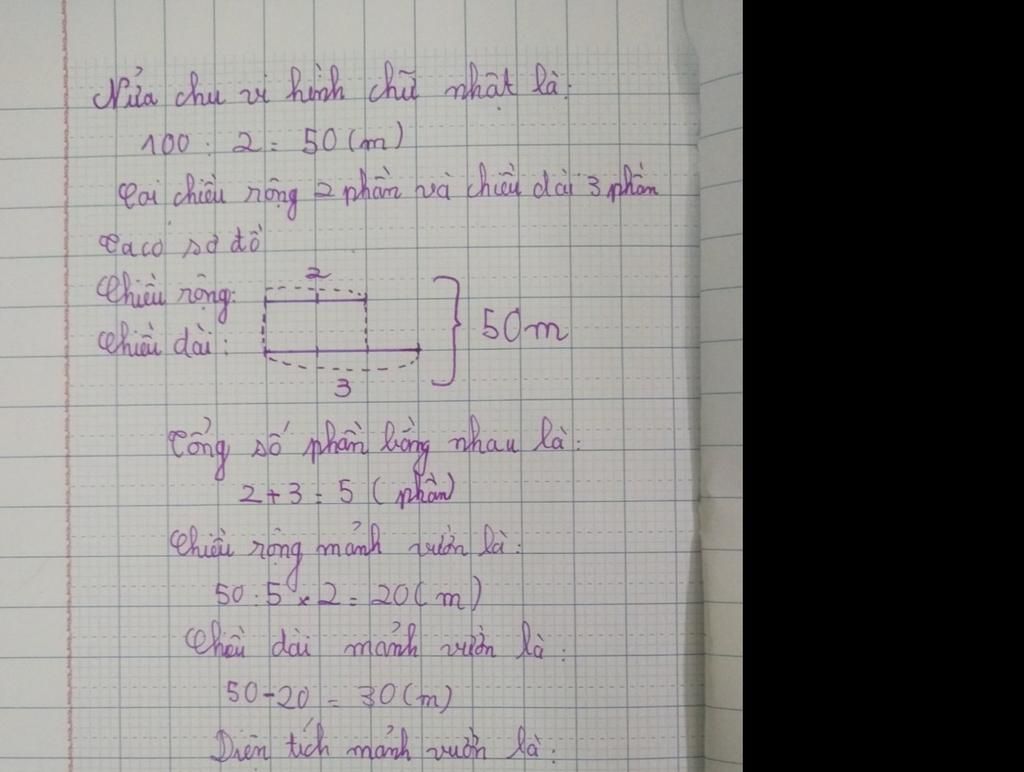 Nửa chu vi hình chữ nhật là:
100 : 2 = 50 (m)
Coi chiều rộng 2 phần và chiều dài 3 phần
Ta có sơ đồ
2
Chiều rộng:
50m
Chiều dài:
3
Tổng số phần bằng nhau là:
2 + 3 = 5 (phần)
Chiều rộng mảnh vườn là:
50 : 5 x 2 = 20 (m)
Chiều dài mảnh vườn là:
50 - 20 = 30 (m)
Diện tích mảnh vườn là: